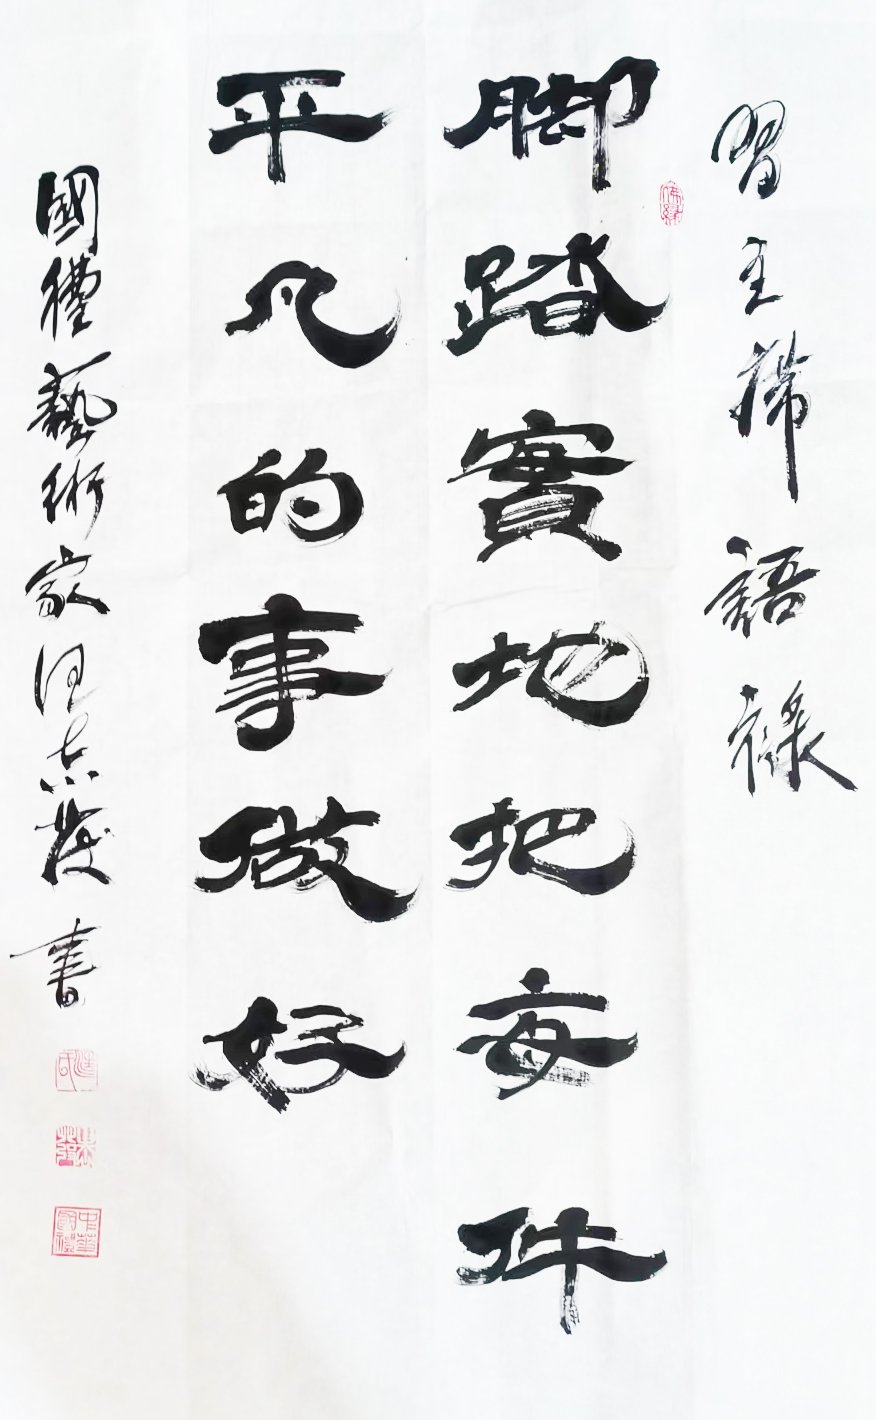 習主席語祿
脚踏實地把每件
平凡的事做好
國禮藝術家汪志發書